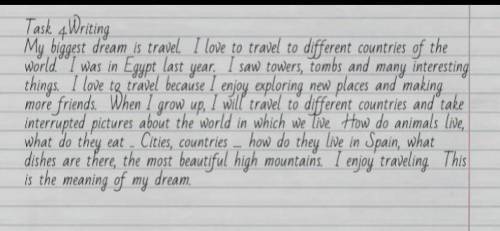 Task 4.Writing
My biggest dream is travel. I love to travel to different countries of the
world. I was in Egypt last year. I saw towers, tombs and many interesting
things. I love to travel because I enjoy exploring new places and making
more friends. When I grow up, I will travel to different countries and take
interrupted pictures about the world in which we live. How do animals live,
what do they eat - Cities, countries ... how do they live in Spain, what
dishes are there, the most beautiful high mountains. I enjoy traveling. This
is the meaning of my dream.